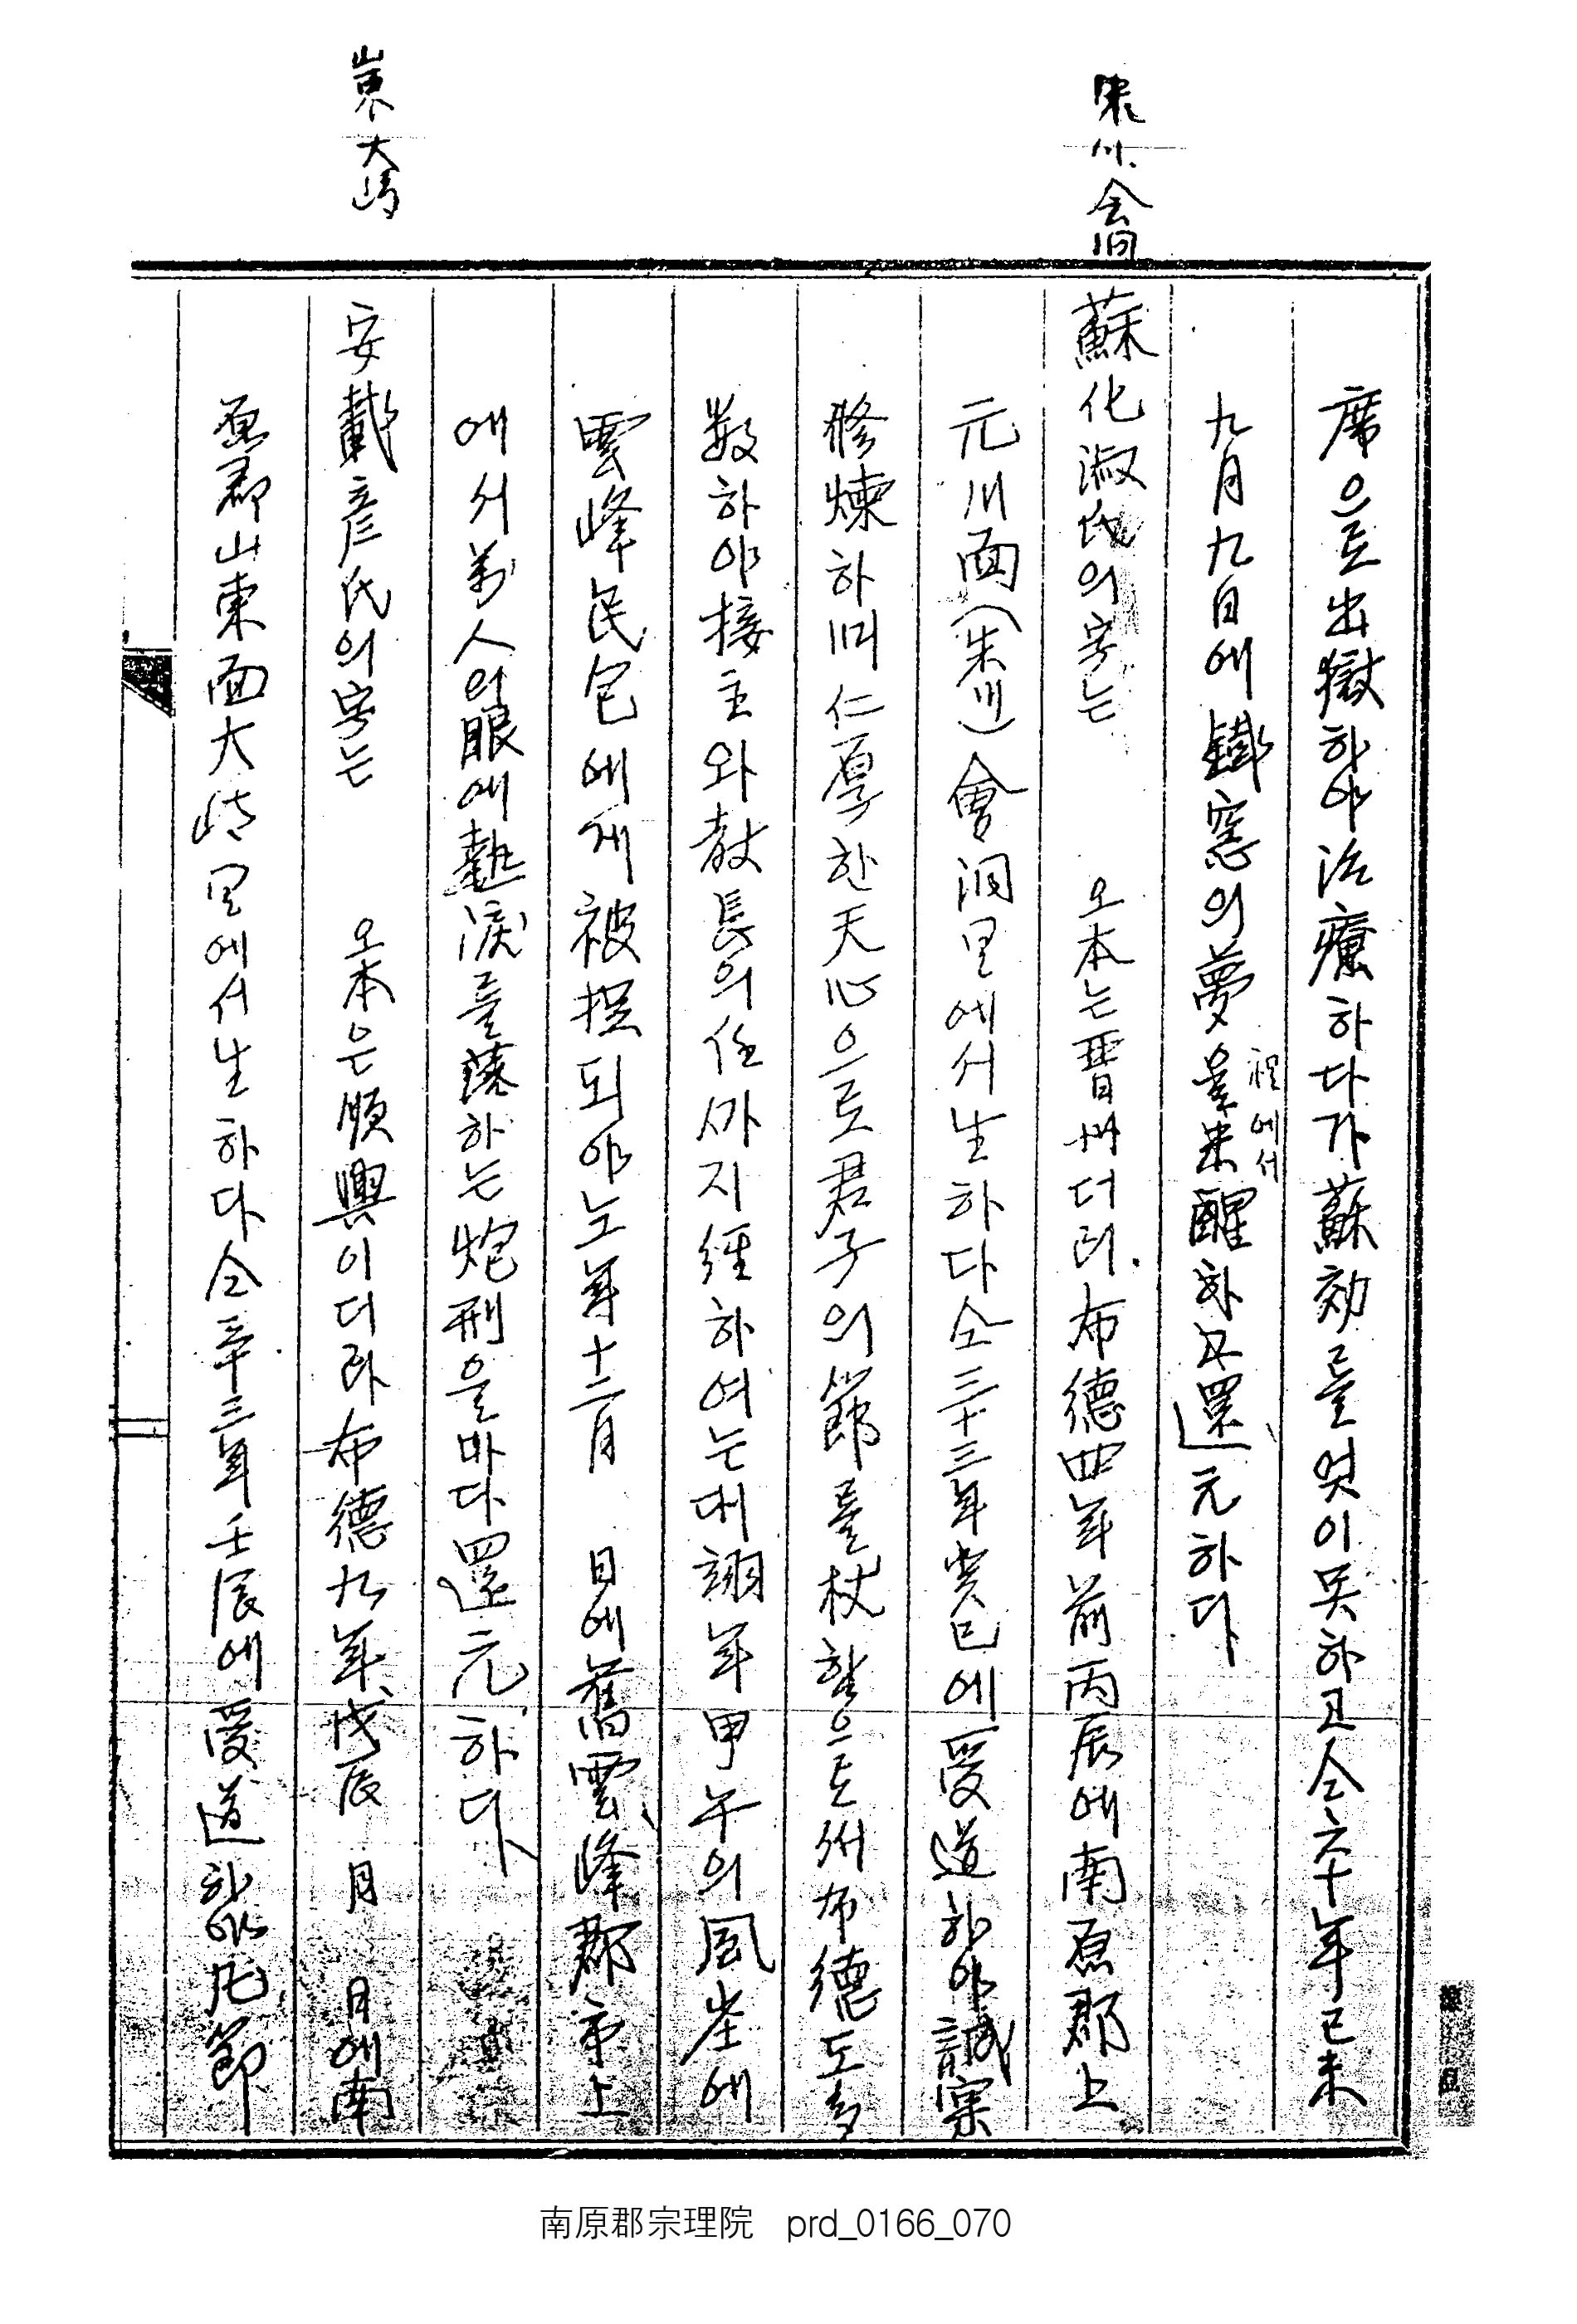 朱川会洞
山東大峙
席으로出獄하야治療하다가蘇効를엇이못하고仝六十年己未
九月九日에鐵窓의夢裡에서未醒하고還元하다
蘇化淑氏의字는 오本는晋州더라.布德四年前丙辰에南原郡上
元川面(朱川)會洞里에서生하다仝三十三年癸巳에受道하야誠實
修煉하며仁厚한天心으로君子의節를杖함으로써布德도多
數하야接主와敎長의任까지經하여는대翊年甲午의風岸에
雲峰民包에게被捉되야노年十二月 日에舊雲峰郡市上
에서萬人의眼에熱淚를落하는炮刑을마다還元하다
安戴彦氏의字는 오本은順興이더라布德九年戊辰 月 日에南
原郡山東面大峙里에서生하다仝三十三年壬辰에受道하야凡節
南原郡宗理院 prd_0166_070